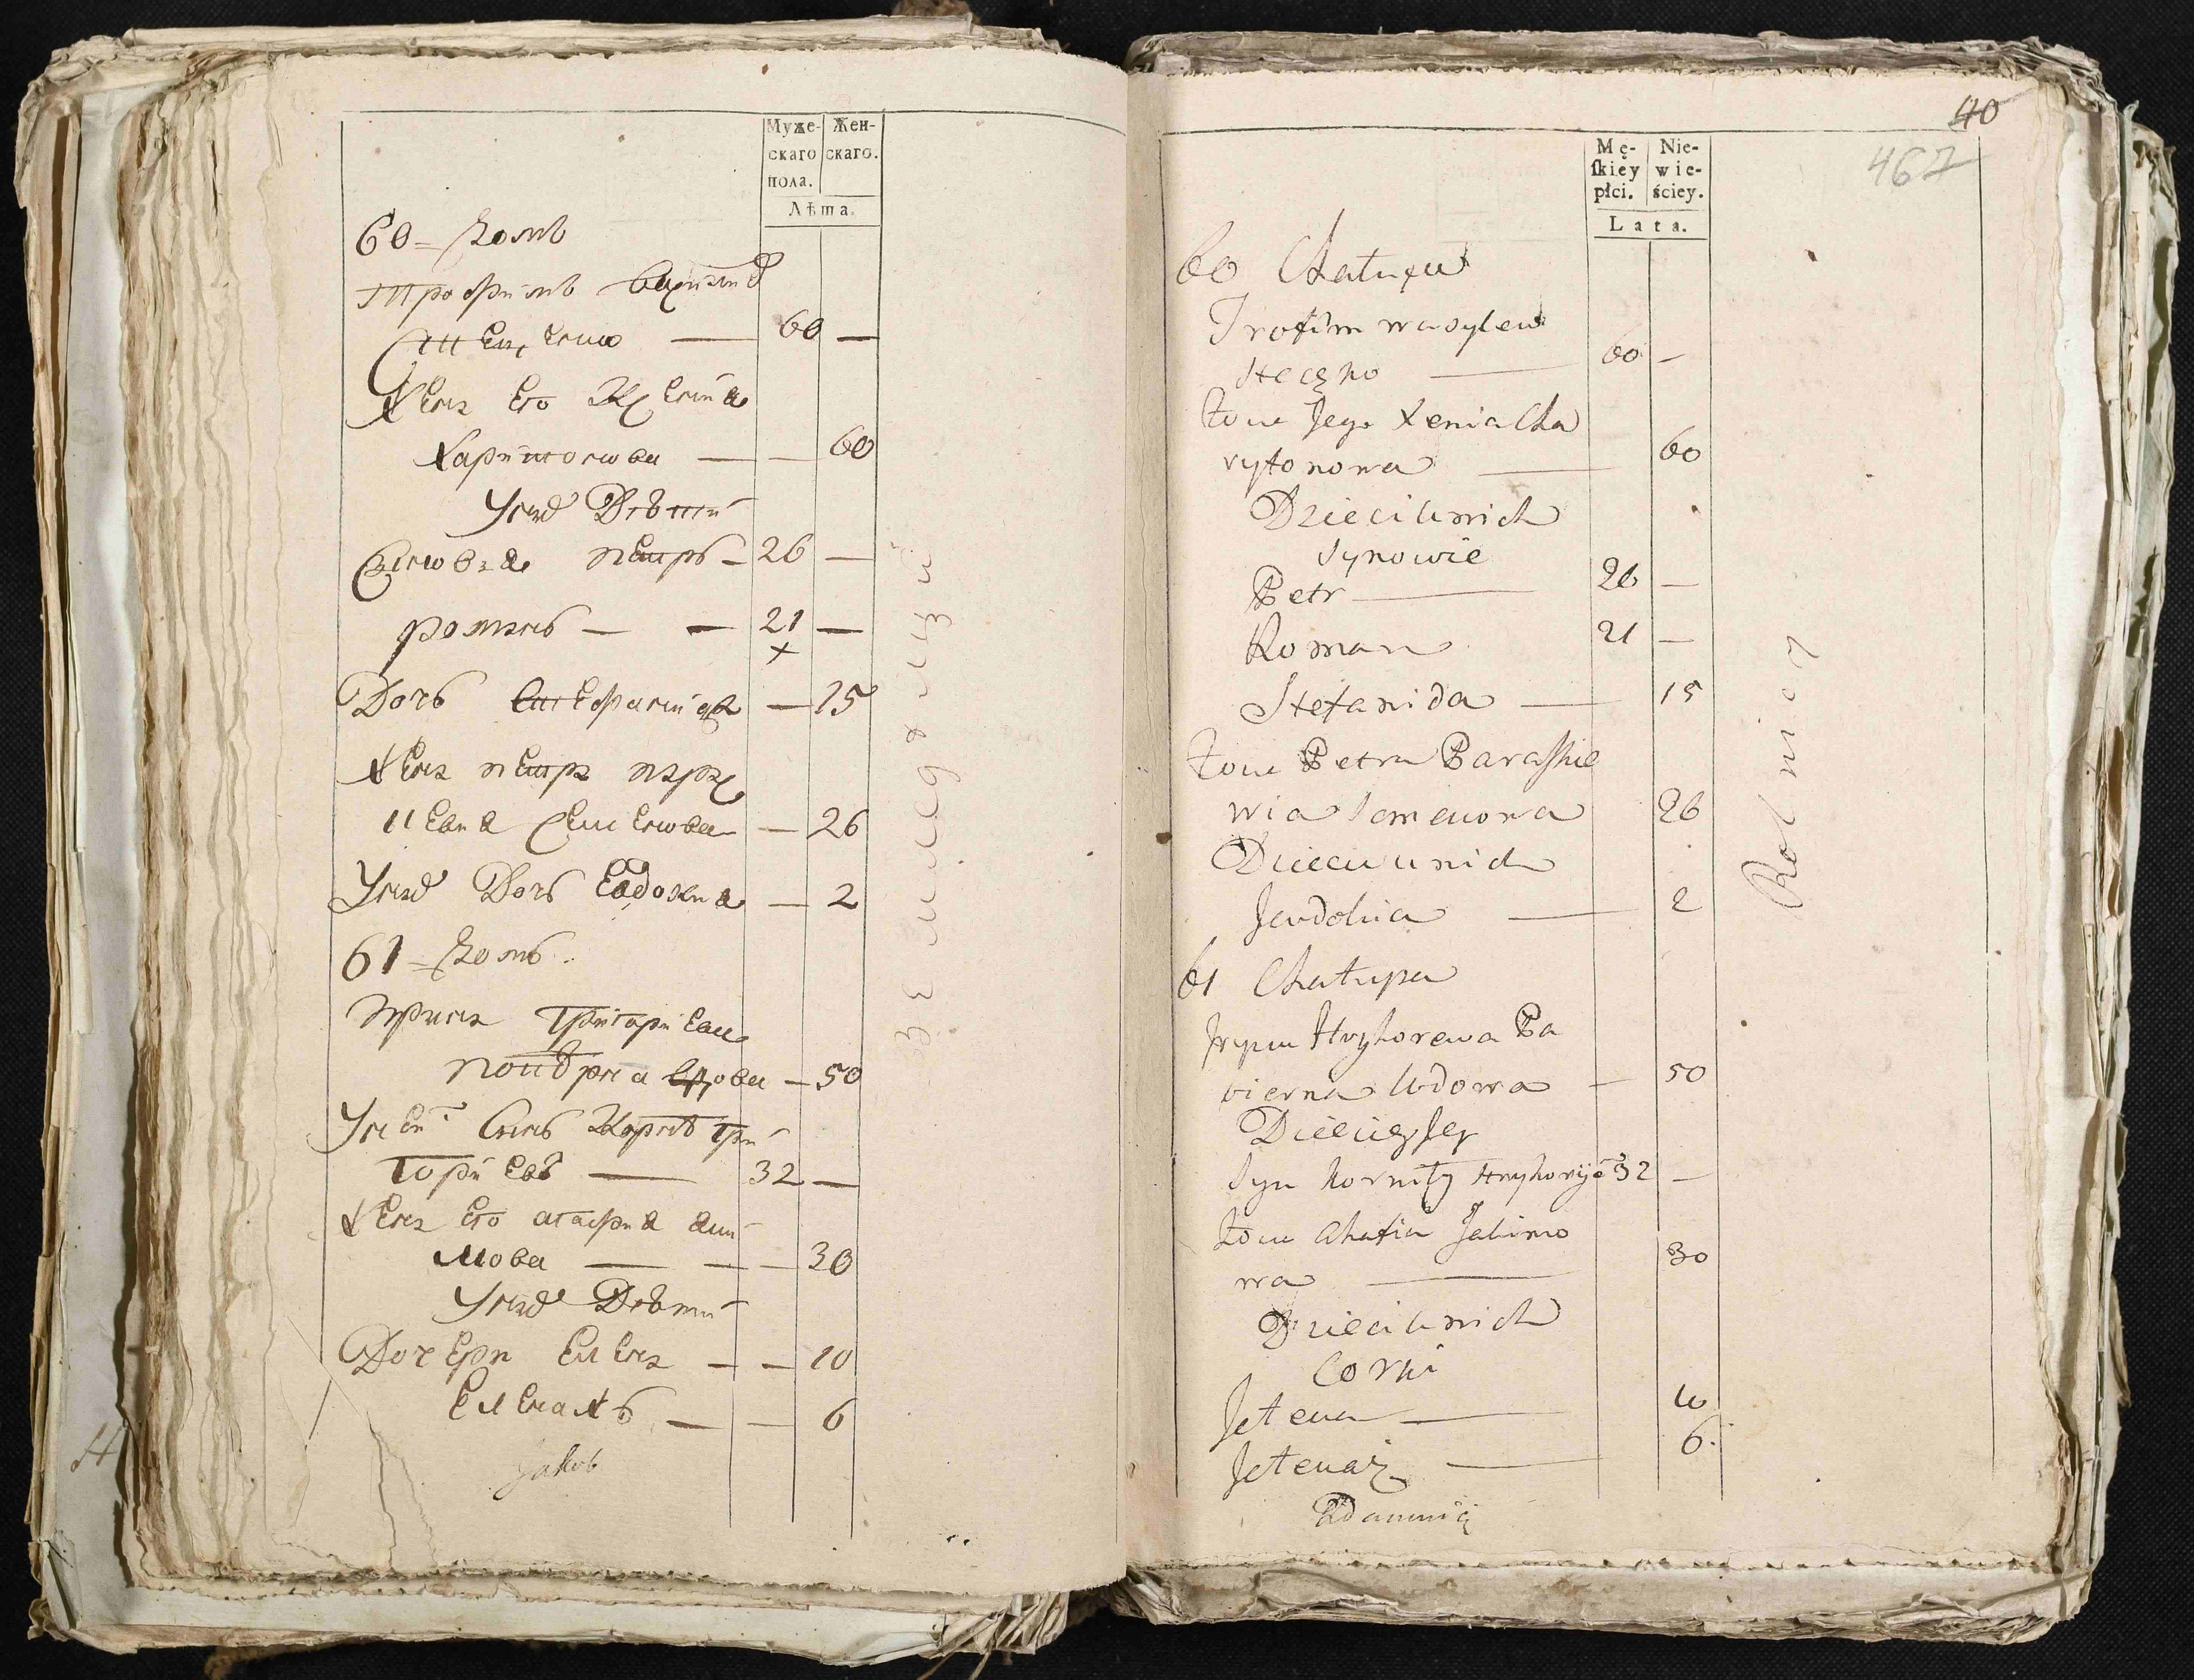 Муже-
скаго
пола.
Жен-
скаго.
Лѣта.
60 = Домъ
Трофимъ Василиев
Стеценко — 60 —
Жена его Ксения
Харитонова — — 60
У них Дѣти
Сыновья Петръ — 26 —
Романъ — — 21 —
+
Дочь Стефанида — 15
Жена Петра Параске
Семенова — 26
У них Дочь Евдокия — 2
61 = Домъ
Ирина Григориева
вдова — 50
У ней Сынъ Корней Гри
гориев — 32 —
Жена его Агафия Яки
мова — — — 30
У них Дѣти
Дочери Елена — — 10
Елена жъ — — 6
Jakob
земледелцы
40
467
Mę-
ſkiey
płci.
Nie-
wie-
ściey.
Lata.
60 Chatupa
Trofim wasylew
Stecęko — 60 —
żona Jego Xenia Cha
rytonowa — 60
Dzieci u nich
Synowie
Petr — 26 —
Roman 21 —
Stefanida — 15
żona Petra Paraskie
wia Semenowa 26
Dzieci u nich
Jewdokia — 2
61 Chatupa
Iryna Hryhorewa Pa
wierna wdowa — 50
Dzieci Jey
Syn Korniły Hryhoryje 32 —
żona Ahafia Jakimo
wa — 30
Dzieci u nich
Corki
Jelena — 10
Jelenaż — 6.
Rolnicy